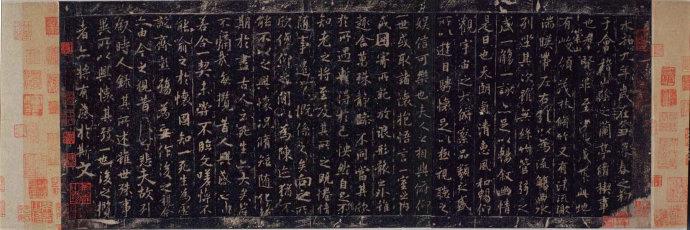 永和九年歲在癸丑暮春之初
于會稽山陰之蘭亭脩稧事
也群賢畢至少長咸集此地
有峻領茂林脩竹又有清流激
湍暎帶左右引以為流觴曲水
列坐其次雖無絲竹管弦之
盛一觴一詠亦足以暢敘幽情
是日也天朗氣清惠風和暢仰
觀宇宙之大俯察品類之盛
所以遊目騁懷足以極視聽之
娛信可樂也夫人之相與俯仰
一世或取諸懷抱悟言一室之內
或因寄所託放浪形骸之外雖
趣舍萬殊靜躁不同當其欣
於所遇蹔得於己怏然自足不
知老之將至及其所之既惓情
隨事遷感慨係之矣向之所
欣俛仰之閒以為陳迹猶不
能不以之興懷況脩短隨化終
期於盡古人云死生亦大矣豈
不痛哉每攬昔人興感之由
若合一契未嘗不臨文嗟悼不
能喻之於懷固知一死生為虛
誕齊彭殤為妄作後之視今
亦由今之視昔悲夫故列
敘時人錄其所述雖世殊事
異所以興懷其致一也後之攬
者亦將有感於斯文